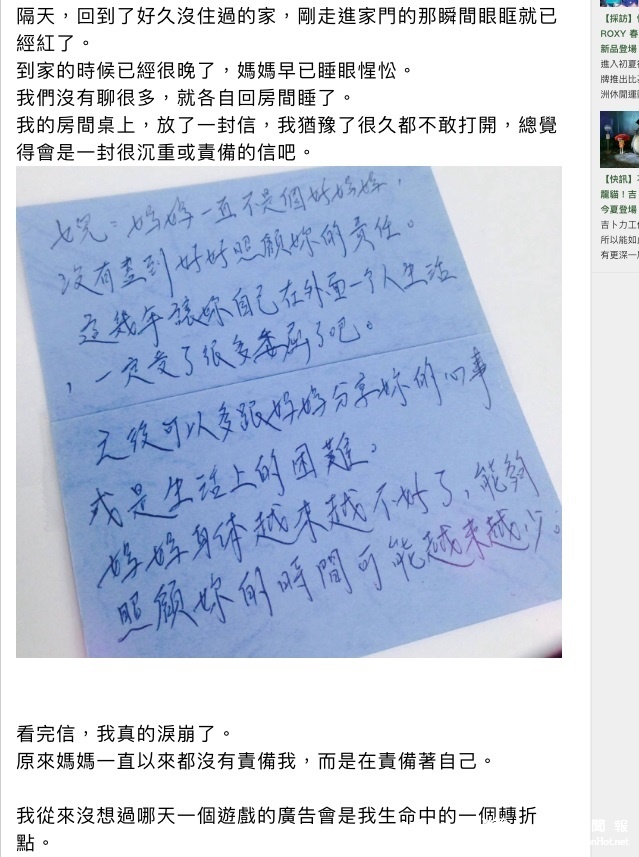 隔天，回到了好久沒住過的家，剛走進家門的那瞬間眼眶就已
經紅了。
到家的時候已經很晚了，媽媽早已睡眼惺忪。
我們沒有聊很多，就各自回房間睡了。
我的房間桌上，放了一封信，我猶豫了很久都不敢打開，總覺
得會是一封很沉重或責備的信吧。
女兒：媽媽一直不是個好媽媽，
沒有盡到好好照顧妳的責任。
這幾年讓妳自己在外面一個人生活
，一定受了很多委屈了吧。
之後可以多跟媽媽分享妳的心事
或是生活上的困難。
媽媽身体越來越不好了，能夠
照顧妳的時間可能越來越少。
看完信，我真的淚崩了。
原來媽媽一直以來都沒有責備我，而是在責備著自己。
我從來沒想過哪天一個遊戲的廣告會是我生命中的一個轉折
點。
【採訪】
ROXY 春
新品登場
進入初夏
牌推出比
洲休閒運
【快訊】
龍貓！吉
今夏登場
吉卜力工
所以能如
有更深一
聞報
nHot.net